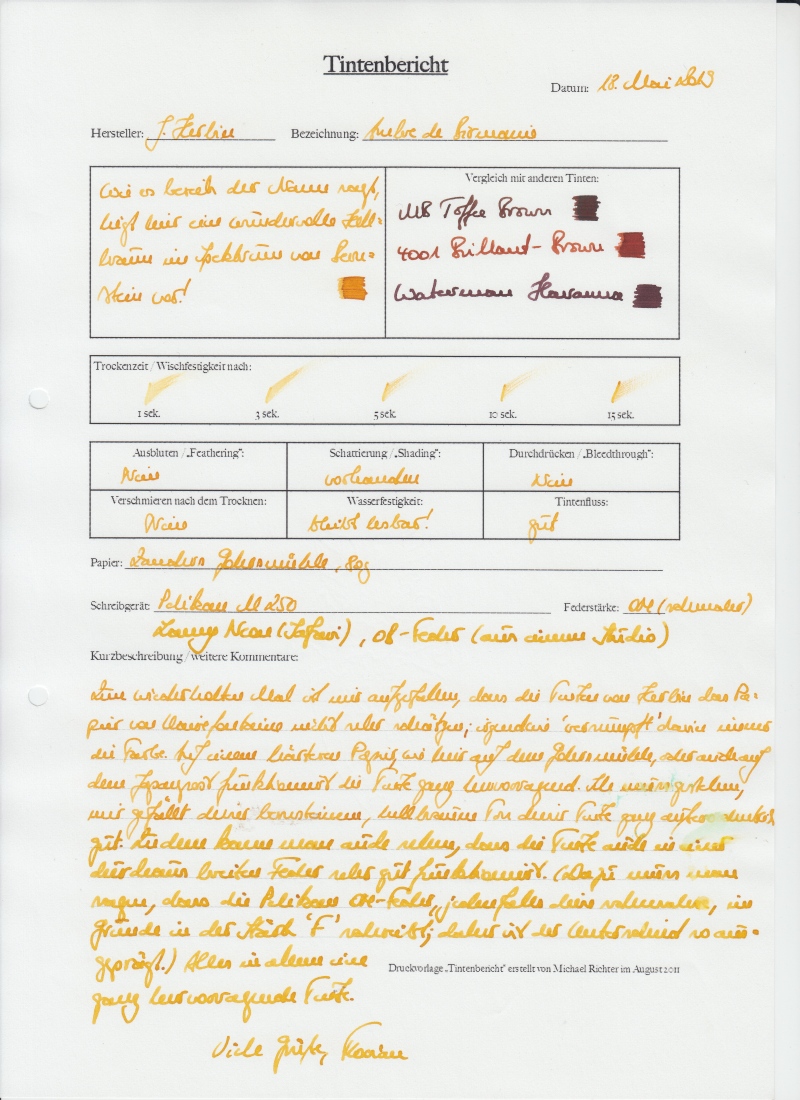 Tintenbericht
Datum: 18. Mai 2013
Hersteller: J. Herbin Bezeichnung: Ambre de Birmanie
Wie es bereits der Name sagt,
liegt hier eine wundervolle Hell-
braun im Farbton von Bern-
stein vor!
Vergleich mit anderen Tinten:
MB Toffee Brown
4001 Brillant-Brown
Waterman Havanna
Trockenzeit / Wischfestigkeit nach:
1 sek. 3 sek. 5 sek. 10 sek. 15 sek.
Ausbluten / „Feathering": Schattierung / „Shading": Durchdrücken / „Bleedthrough":
Nein vorhanden Nein
Verschmieren nach dem Trocknen: Wasserfestigkeit: Tintenfluss:
Nein bleibt lesbar! gut
Papier: Zanders Gohrsmühle, 80g
Schreibgerät: Pelikan M 250 Federstärke: OM (schmaler)
Lamy Neon (Safari), OB-Feder (aus einem Studio)
Kurzbeschreibung / weitere Kommentare:
Zum wiederholten Mal ist mir aufgefallen, dass die Tinten von Herbin das Pa-
pier von Clairefontaine nicht sehr schätzen; irgendwie 'versumpft' darin immer
die Farbe. Auf einem härteren Papier, wie hier auf dem Gohrsmühle, oder auch auf
dem Japanpost funktioniert die Tinte ganz hervorragend. Ich muss gestehen,
mir gefällt dieser bernsteinene, hellbraune Ton dieser Tinte ganz
gut. Zudem kann man auch sehen, dass die Tinte auch in einer
durchaus breiten Feder sehr gut funktioniert. (Dazu muss man
sagen, dass die Pelikan OM-Feder, jedenfalls diese schmalere, im
Grunde in der Stärke 'F' schreibt; daher ist der Unterschied so aus-
geprägt.) Alles in allem eine
ganz hervorragende Tinte.
Druckvorlage „Tintenbericht" erstellt von Michael Richter im August 2011
Viele Grüße,